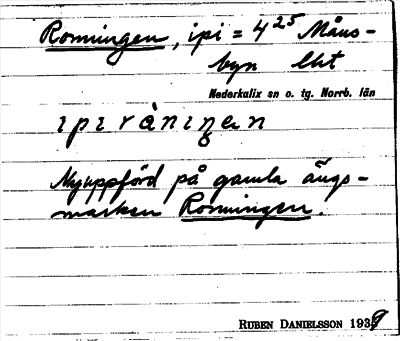 Ronningen, ipi = 4²⁵ Måns-
byn lht
Nederkalix sn o. tg. Norrb. län
ıpı rànıŋen
Nyuppförd på gamla ängs-
marken Ronningen.
RUBEN DANIELSSON 1939